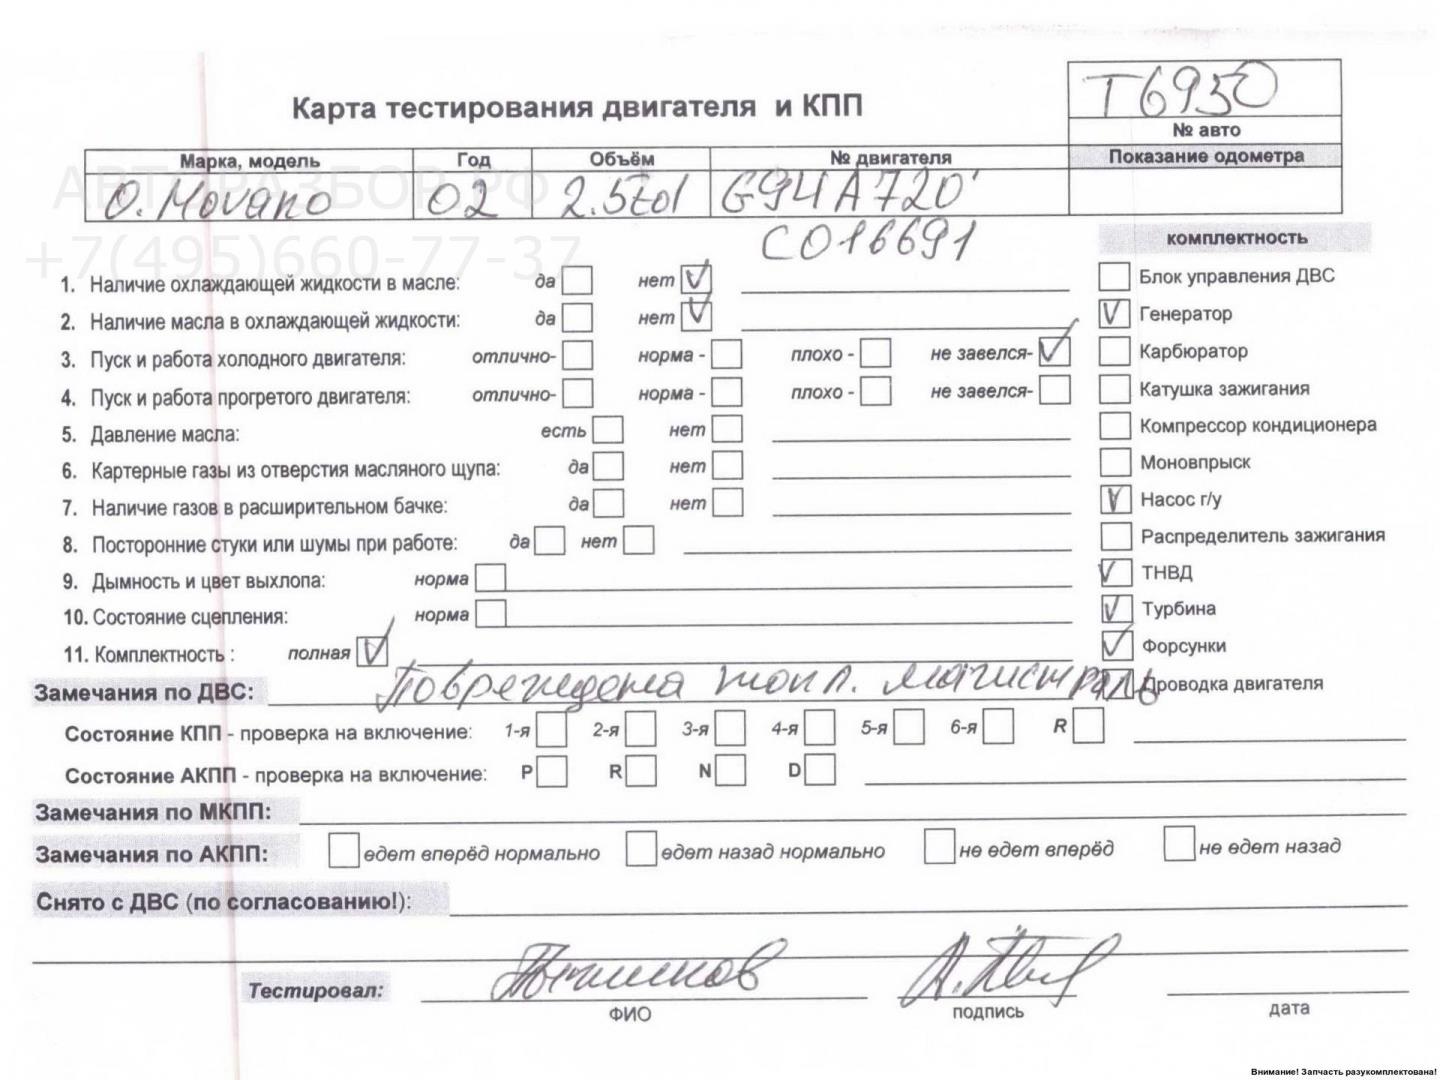 T6950
Карта тестирования двигателя и КПП
№ авто
Марка, модель Год Объём № двигателя Показание одометра
O. Movano 02 2.5tdi G9UA720
C016691
АВТОРАЗБОР.РФ
+7(495)660-77-37
комплектность
1. Наличие охлаждающей жидкости в масле: да нет Блок управления ДВС
2. Наличие масла в охлаждающей жидкости: да нет Генератор
3. Пуск и работа холодного двигателя: отлично- норма - плохо - не завелся- Карбюратор
4. Пуск и работа прогретого двигателя: отлично- норма - плохо - не завелся- Катушка зажигания
5. Давление масла: есть нет Компрессор кондиционера
6. Картерные газы из отверстия масляного щупа: да нет Моновпрыск
7. Наличие газов в расширительном бачке: да нет Насос г/у
8. Посторонние стуки или шумы при работе: да нет Распределитель зажигания
9. Дымность и цвет выхлопа: норма ТНВД
10. Состояние сцепления: норма Турбина
11. Комплектность : полная Форсунки
Замечания по ДВС: Повреждена топл. магистраль Проводка двигателя
Состояние КПП - проверка на включение: 1-я 2-я 3-я 4-я 5-я 6-я R
Состояние АКПП - проверка на включение: P R N D
Замечания по МКПП:
Замечания по АКПП: едет вперёд нормально едет назад нормально не едет вперёд не едет назад
Снято с ДВС (по согласованию!):
Тестировал:
ФИО подпись дата
Внимание! Запчасть разукомплектована!